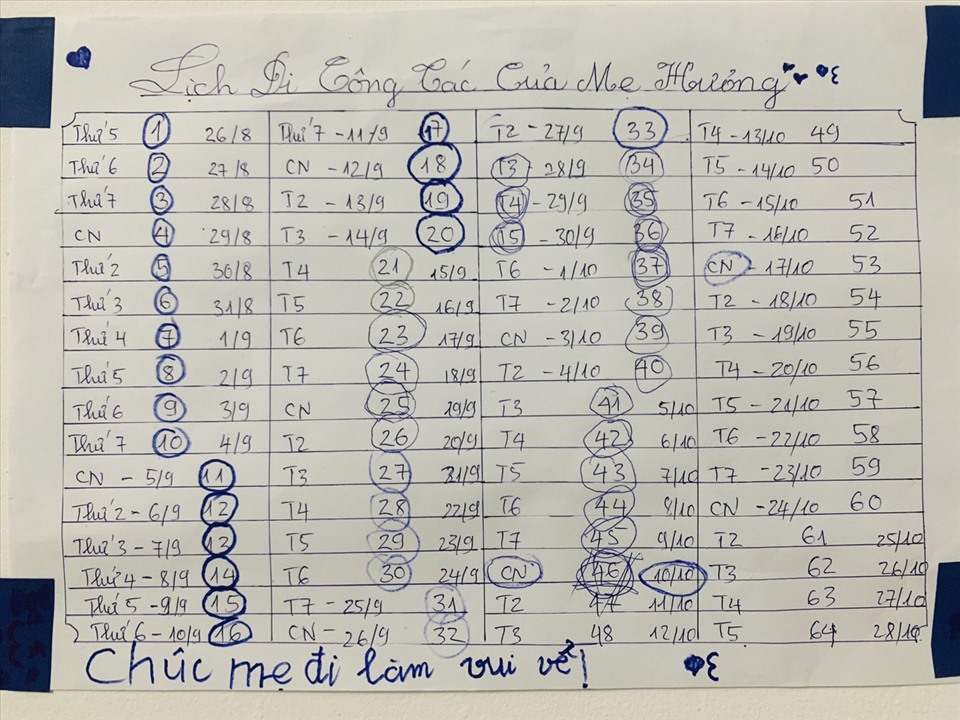 Lịch Đi Công Tác Của Mẹ Hưởng
Thứ 5 1 26/8 Thứ 7 - 11/9 17 T2 - 27/9 33 T4 - 13/10 49
Thứ 6 2 27/8 CN - 12/9 18 T3 - 28/9 34 T5 - 14/10 50
Thứ 7 3 28/8 T2 - 13/9 19 T4 - 29/9 35 T6 - 15/10 51
CN 4 29/8 T3 - 14/9 20 T5 - 30/9 36 T7 - 16/10 52
Thứ 2 5 30/8 T4 21 15/9 T6 - 1/10 37 CN - 17/10 53
Thứ 3 6 31/8 T5 22 16/9 T7 - 2/10 38 T2 - 18/10 54
Thứ 4 7 1/9 T6 23 17/9 CN - 3/10 39 T3 - 19/10 55
Thứ 5 8 2/9 T7 24 18/9 T2 - 4/10 40 T4 - 20/10 56
Thứ 6 9 3/9 CN 25 19/9 T3 41 5/10 T5 - 21/10 57
Thứ 7 10 4/9 T2 26 20/9 T4 42 6/10 T6 - 22/10 58
CN - 5/9 11 T3 27 21/9 T5 43 7/10 T7 - 23/10 59
Thứ 2 - 6/9 12 T4 28 22/9 T6 44 8/10 CN - 24/10 60
Thứ 3 - 7/9 13 T5 29 23/9 T7 45 9/10 T2 61 25/10
Thứ 4 - 8/9 14 T6 30 24/9 CN 46 10/10 T3 62 26/10
Thứ 5 - 9/9 15 T7 - 25/9 31 T2 47 11/10 T4 63 27/10
Thứ 6 - 10/9 16 CN - 26/9 32 T3 48 12/10 T5 64 28/10
Chúc mẹ đi làm vui vẻ!